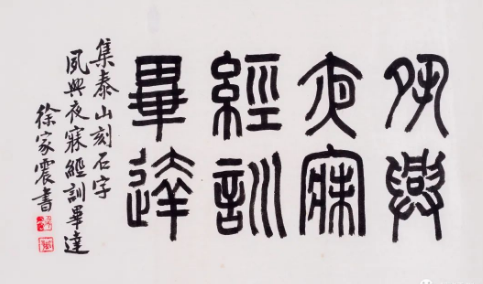 夙興
夜寐
經訓
畢達
集泰山刻石字
夙興夜寐經訓畢達
徐家震書